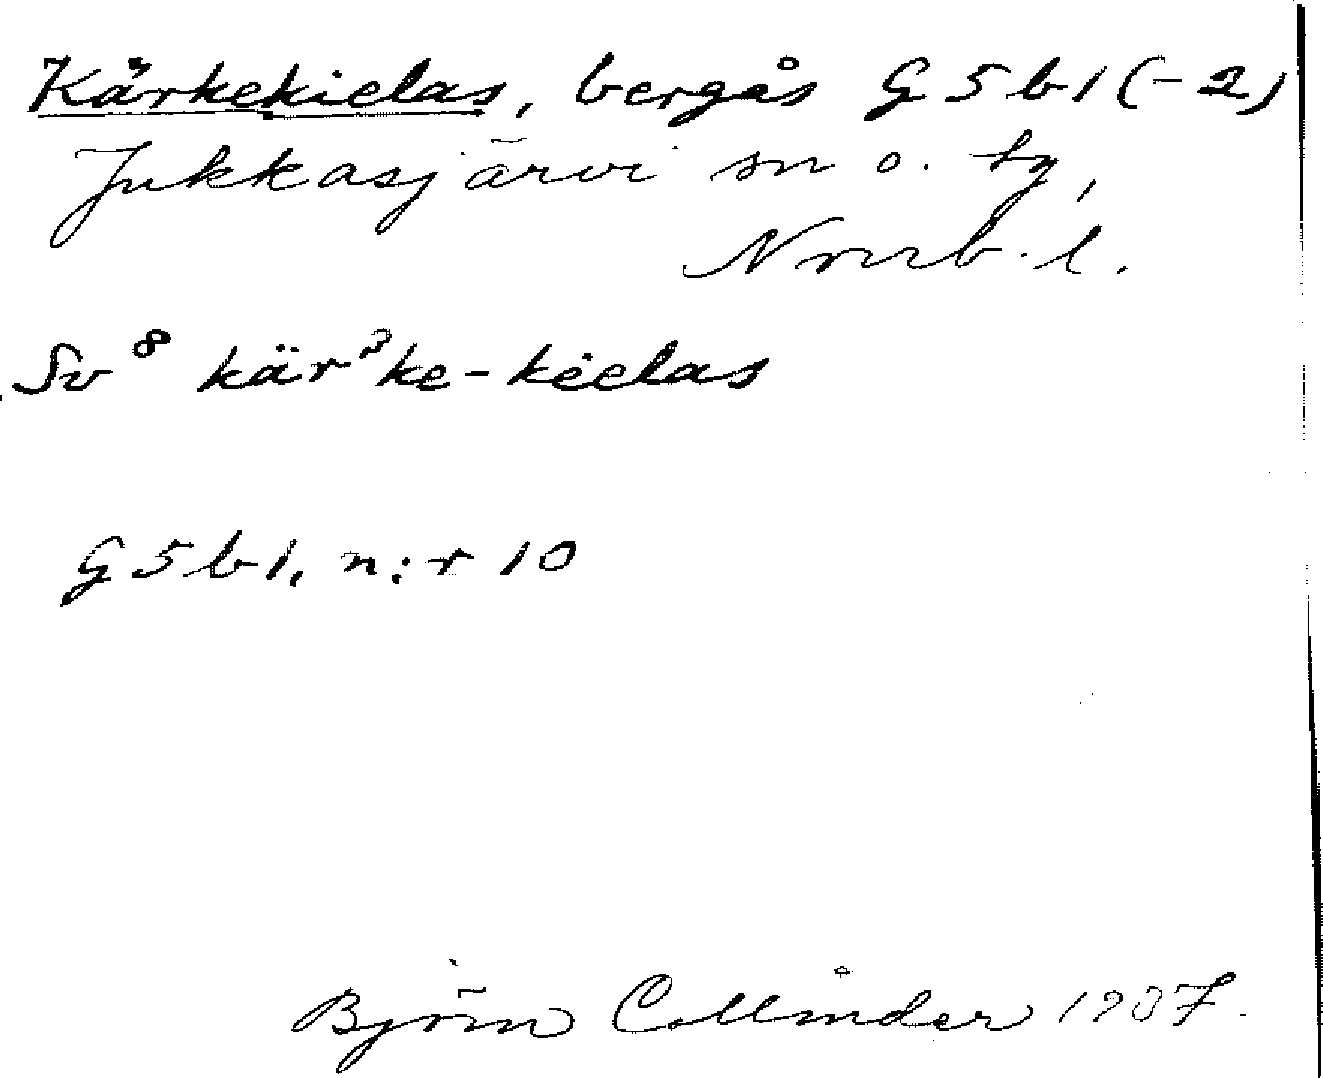 Kärkekielas, bergås G 5 b 1 (-2)
Jukkasjärvi sn o. tg,
Nrrb. l.
Sv⁸ kärˀke-kielas
G 5 b 1, n:r 10
Björn Collinder 1937.